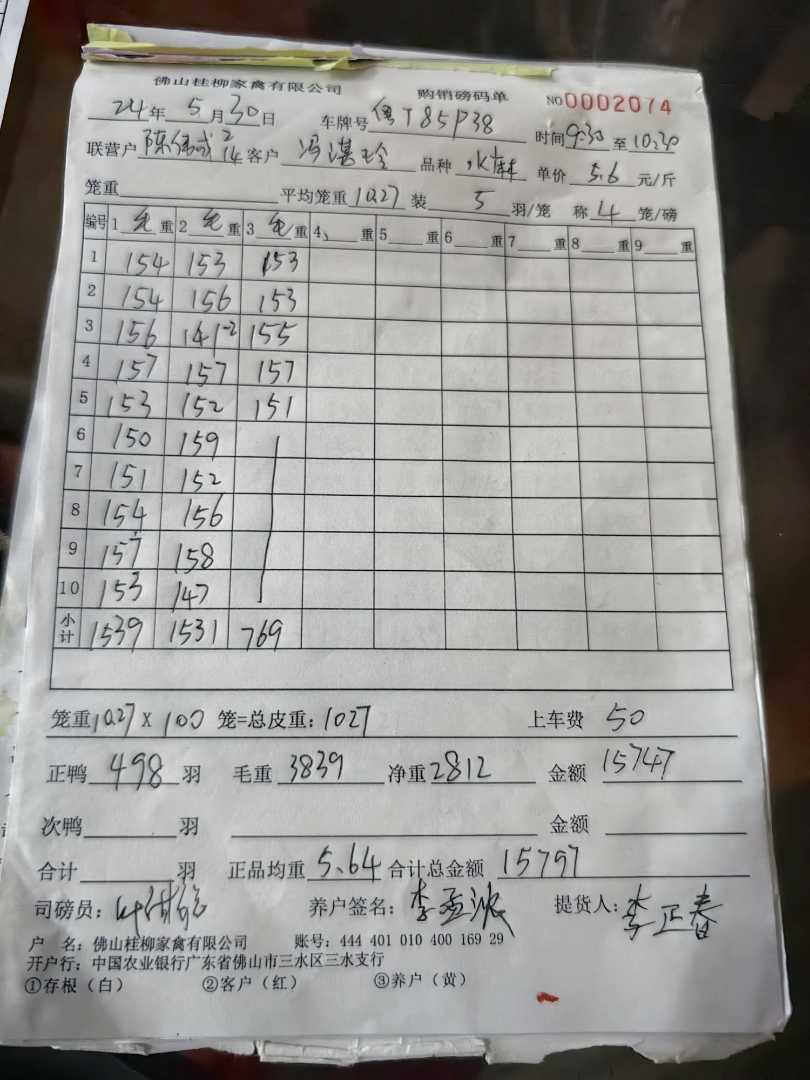 佛山桂柳家禽有限公司 购销磅码单 NO0002074
24年 5月30日 车牌号粤T85P38 时间9:30至10:30
联营户 陈伟成 2/14 客户 冯湛玲 品种 水麻 单价 5.6 元/斤
笼重 平均笼重10.27 装 5 羽/笼 称 4 笼/磅
编号 1 毛 重 2 毛 重 3 毛 重 4、 重 5 重 6 重 7 重 8 重 9 重
1 154 153 153
2 154 156 153
3 156 141-2 155
4 157 157 157
5 153 152 151
6 150 159
7 151 152
8 154 156
9 157 158
10 153 147
小计 1539 1531 769
笼重10.27 X 100 笼=总皮重:1027 上车费 50
正鸭 498 羽 毛重 3839 净重 2812 金额 15747
次鸭 羽 金额
合计 羽 正品均重 5.64 合计总金额 15797
司磅员: 养户签名: 提货人:李正春
户 名:佛山桂柳家禽有限公司 账号:444 401 010 400 169 29
开户行:中国农业银行广东省佛山市三水区三水支行
①存根(白) ②客户(红) ③养户(黄)